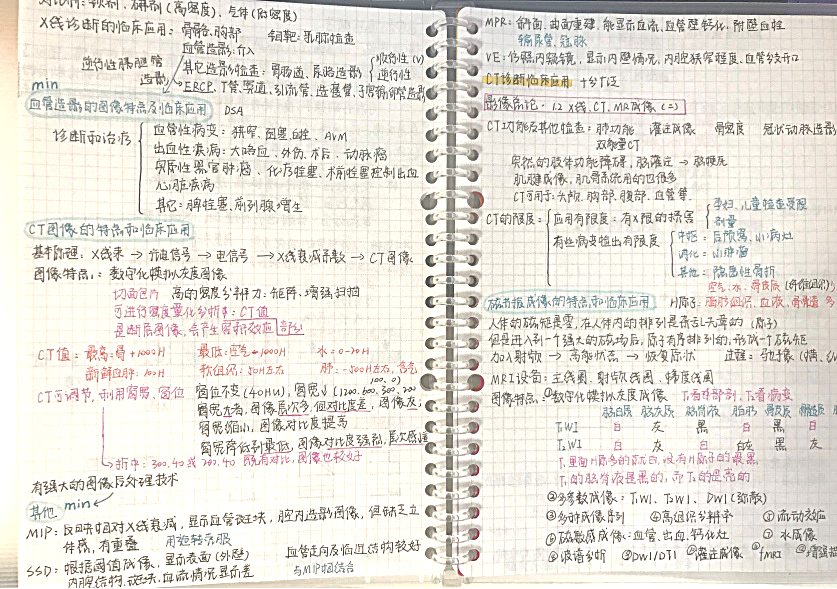 X线诊断的临床应用：骨骼、胸部 钼靶：乳腺检查
血管造影：介入
其它造影检查：胃肠道、尿路造影
逆行性
逆行性胰胆管造影
ERCP、T管、窦道、引流管
min
血管造影的图像特点及临床应用 DSA
诊断和治疗
血管性病变：狭窄、闭塞、血栓、AVM
出血性疾病：大咯血、外伤、术后、动脉瘤
实质性器官肿瘤、化疗栓塞、术前栓塞控制出血
心脏疾病
其它：脾栓塞、前列腺增生
CT图像的特点和临床应用
基本原理：X线束→光电信号→电信号→X线衰减系数→CT图像
图像特点：数字化模拟灰度图像
切面图片 高的密度分辨力：矩阵、增强扫描
可进行密度量化分析：CT值
是断层图像，会产生容积效应
CT值：最高：骨+1000H 最低：空气-1000H 水=0-20H
新鲜血肿：100H 软组织：50H左右 肺：-500H左右，含气
CT可调节，利用窗宽、窗位
窗位不变(40HU)，图宽↓(1200.600.300.200
100.0)
窗宽大者，图像层次多，但对比度差，图像灰；
窗宽缩小，图像对比度提高
窗宽降低到最低，图像对比度强烈，层次感差
折中：300.40或200.40 既有对比，图像也较好
有强大的图像后处理技术
其他 min
MIP：反映相对X线衰减，显示血管斑块，腔内造影图像，但缺乏立
体感，有重叠 用旋转克服
SSD：根据阈值成像，显示表面(外壁) 血管走向及临近结构较好
内腔结构、斑块、血流情况显示差 与MIP相结合
MPR：斜面、曲面重建，能显示血流，血管壁钙化，附壁血栓
输尿管、冠脉
VE：仿照内窥镜，显示内壁情况，内腔狭窄程度，血管分支开口
CT诊断临床应用 十分广泛
影像总论·12 X线、CT、MR成像(二)
CT功能及其他检查：肺功能 灌注成像 骨密度 冠状动脉造影
双能量CT
突然的肢体功能障碍，脑灌注→脑梗死
肌腱成像，肌骨系统用的也很多
CT可用于：头颅、胸部、腹部、血管等
CT的限度：
应用有限度：有X限的损害
孕妇、儿童检查受限
剂量
有些病变检出有限度
中枢：后颅窝、小病灶
消化：小肿瘤
其他：隐匿性骨折
空气、水、骨皮质
磁共振成像的特点和临床应用 H原子：脂肪组织、血液、骨髓道 多
人体的磁矩是零，在人体内的排列是杂乱无章的(原子)
但是进入到一个强大的磁场后，原子有序排列的，形成一个磁矩
加入射频→高能状态→恢复原状
MRI设备：主线圈、射频线圈、梯度线圈
图像特点：①数字化模拟灰度成像 T₁看解剖，T₂看病变
脑白质 脑灰质 脑脊液 脂肪 骨皮质
T₁WI 白 灰 黑 白 黑 白
T₂WI 白 灰 白 白灰 黑
T₁里面H原多的就白，没有H原子的最黑
T₁的脑脊液是黑的，而T₂的是亮的
②多参数成像：T₁WI、T₂WI、DWI(弥散)
③多种成像序列 ④高组织分辨率 流动效应
⑥磁敏感成像：血管、出血、钙化灶 水成像
波谱分析 DWI/DTI 灌注成像 fMRI